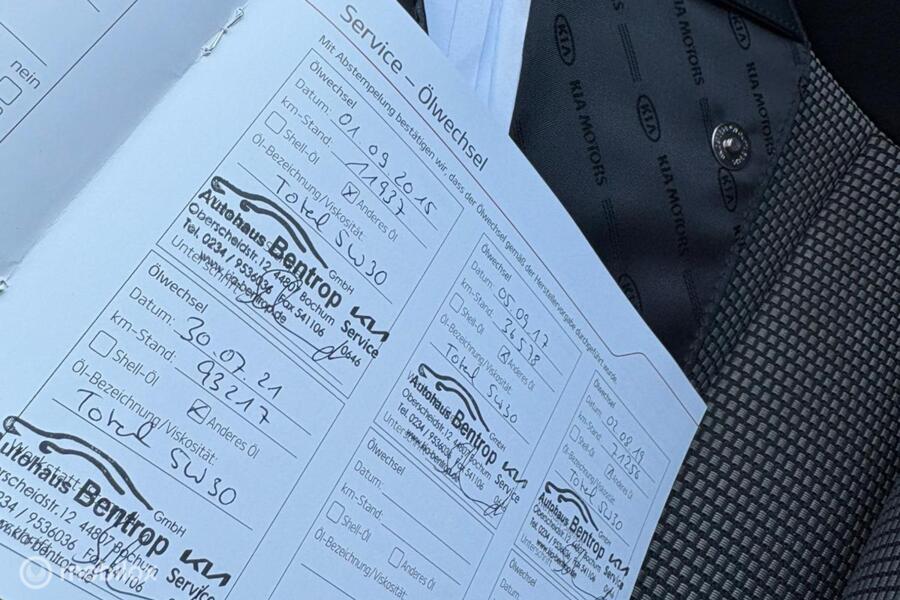 nein
Service – Ölwechsel
Mit Abstempelung bestätigen wir, dass der Ölwechsel gemäß der Herstellervorgabe durchgeführt wurde.
Ölwechsel
Datum: 01.09.2015
km-Stand: 11937
Shell-Öl
Anderes Öl
Öl-Bezeichnung/Viskosität:
Total 5W30
Autohaus Bentrop GmbH
Oberscheidstr.12 44807 Bochum
Tel. 0234 / 9536036 Fax 541106
www.kia-bentrop.de
KIA Service
0646
Ölwechsel
Datum: 05.09.17
km-Stand: 36538
Shell-Öl
Anderes Öl
Öl-Bezeichnung/Viskosität:
Total 5W30
Autohaus Bentrop GmbH
Oberscheidstr.12 44807 Bochum
Tel. 0234 / 9536036 Fax 541106
KIA Service
Ölwechsel
Datum:
km-Stand: 71256
Shell-Öl
Anderes Öl
Öl-Bezeichnung/Viskosität:
Total 5W30
Autohaus Bentrop GmbH
KIA Service
Ölwechsel
Datum: 30.07.21
km-Stand: 93217
Shell-Öl
Anderes Öl
Öl-Bezeichnung/Viskosität:
Total 5W30
Autohaus Bentrop GmbH
Oberscheidstr.12 44807 Bochum
KIA Service
Ölwechsel
Datum:
km-Stand:
Shell-Öl
Anderes Öl
Öl-Bezeichnung/Viskosität:
Ölwechsel
Datum:
KIA
KIA MOTORS
KIA
KIA MOTORS
KIA
KIA MOTORS
KIA MOTORS